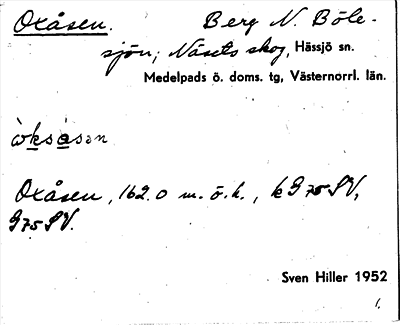 Oxåsen. Berg N. Böle-
sjön; Näsets skog, Hässjö sn.
Medelpads ö. doms. tg, Västernorrl. län.
Oxåsen, 162.0 m. ö. h., k G75SV,
G75SV.
Sven Hiller 1952
1.